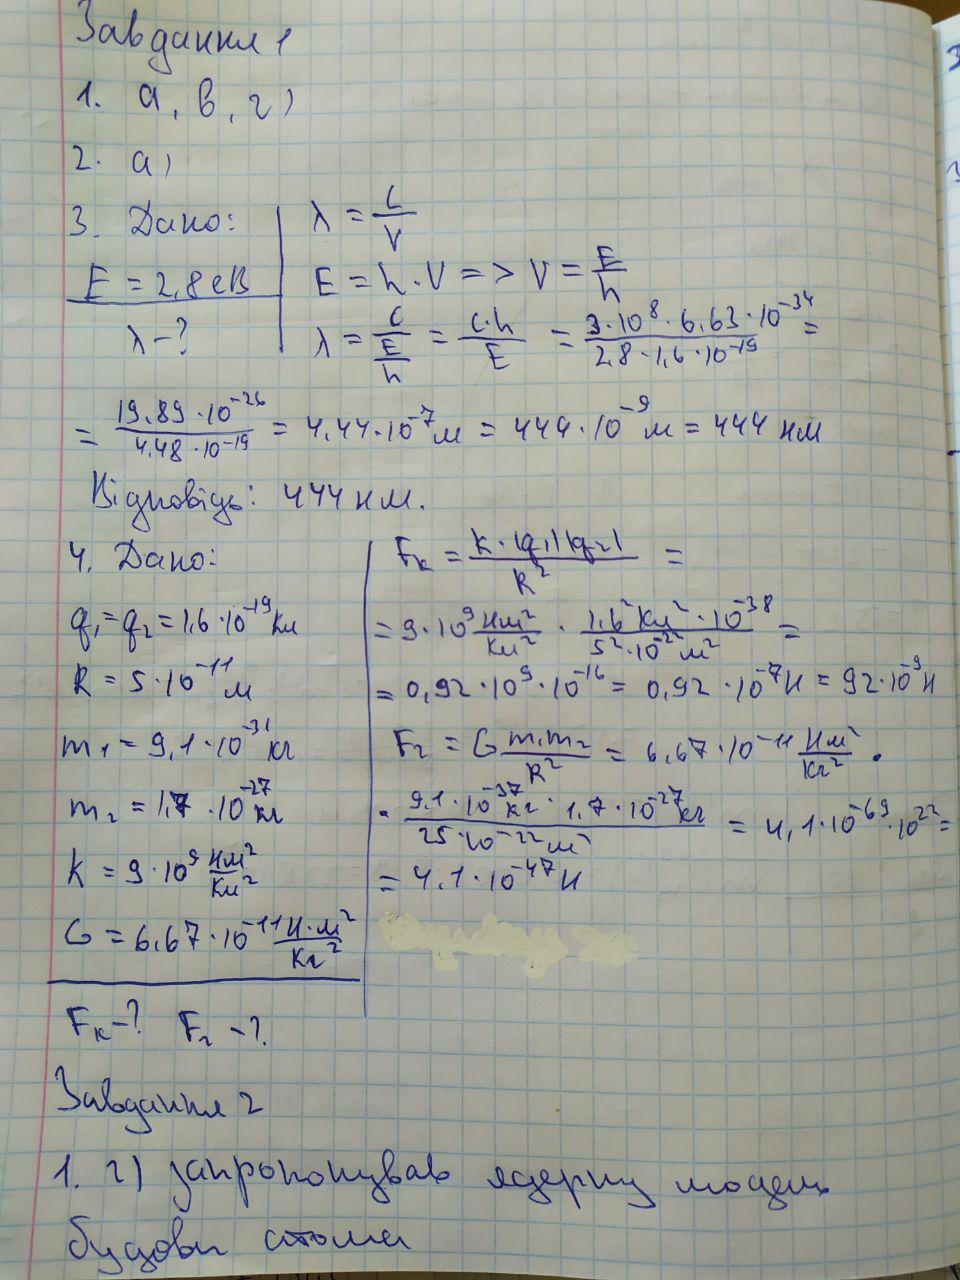 Завдання 1
1. а, в, г)
2. а)
3. Дано:
E = 2,8 еВ
λ - ?
λ = c/ν
E = h · ν => ν = E/h
λ = c/(E/h) = c·h/E = (3·10⁸ · 6,63·10⁻³⁴)/(2,8 · 1,6 · 10⁻¹⁹) =
= (19,89 · 10⁻²⁶)/(4,48 · 10⁻¹⁹) = 4,44·10⁻⁷ м = 444·10⁻⁹ м = 444 нм
Відповідь: 444 нм.
4. Дано:
q₁ = q₂ = 1,6 · 10⁻¹⁹ Кл
R = 5·10⁻¹¹ м
m₁ = 9,1 · 10⁻³¹ кг
m₂ = 1,7 · 10⁻²⁷ кг
k = 9 · 10⁹ Нм²/Кл²
G = 6,67 · 10⁻¹¹ Н·м²/кг²
Fк - ? Fг - ?
Fк = k · |q₁| |q₂| / R² =
= 9·10⁹ Нм²/Кл² · (1,6² Кл² · 10⁻³⁸)/(5²·10⁻²² м²) =
= 0,92 · 10⁹ · 10⁻¹⁶ = 0,92 · 10⁻⁷ Н = 92·10⁻⁹ Н
Fг = G m₁m₂/R² = 6,67 · 10⁻¹¹ Нм²/кг² ·
· (9,1 · 10⁻³⁷ кг · 1,7 · 10⁻²⁷ кг)/(25 · 10⁻²² м²) = 4,1·10⁻⁶⁹ · 10²² =
= 4,1 · 10⁻⁴⁷ Н
Завдання 2
1. г) запропонував ядерну модель
будови атома